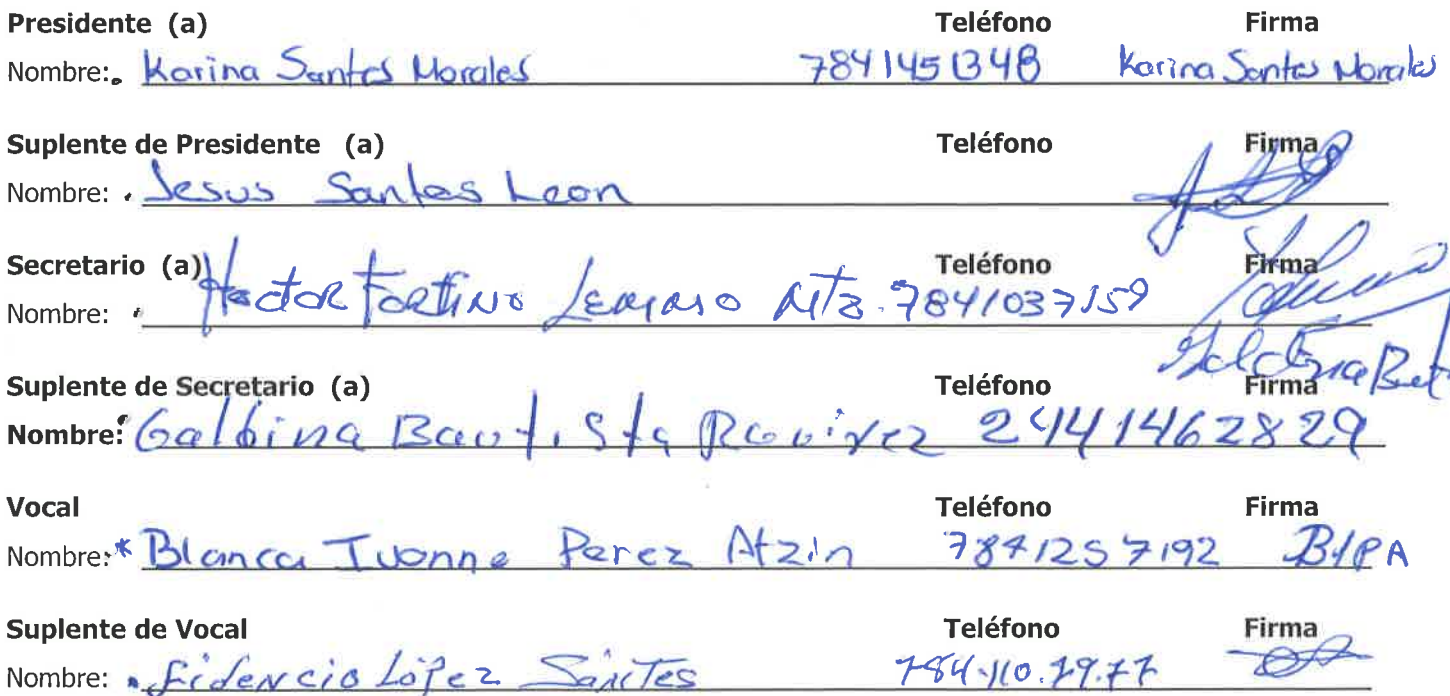 Presidente (a) Teléfono Firma
Nombre: Karina Santes Morales 7841451348 Karina Santes Morales
Suplente de Presidente (a) Teléfono Firma
Nombre: Jesus Santes Leon
Secretario (a) Teléfono Firma
Nombre: Hector Fortino Lemaso Mtz. 7841037159
Suplente de Secretario (a) Teléfono Firma
Nombre: Galbina Bautista Ramirez 2414462829
Vocal Teléfono Firma
Nombre: * Blanca Ivonne Perez Atzin 7841257192 BIPA
Suplente de Vocal Teléfono Firma
Nombre: Fidencio López Santes 784.110.79.77